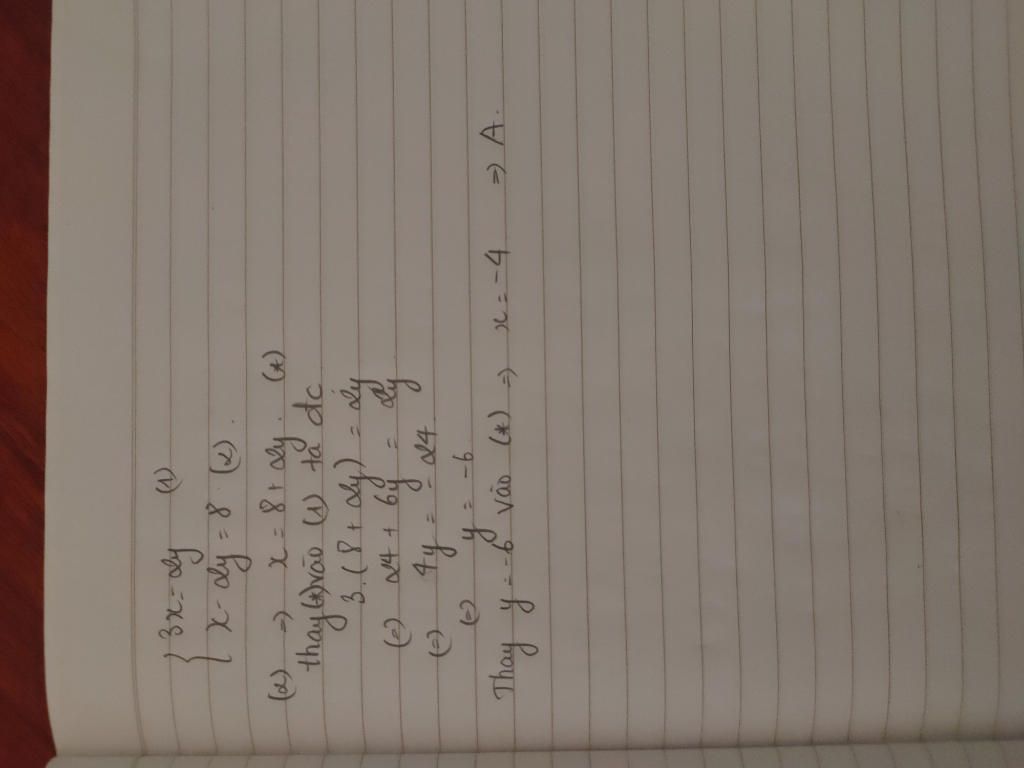 { 3x = 2y (1)
x - 2y = 8. (2).
(2) => x = 8 + 2y. (*)
thay (*) vào (1) ta đc
3.(8 + 2y) = 2y
(=) 24 + 6y = 2y
(=) 4y = -24
(=) y = -6
Thay y = -6 vào (*) => x = -4 => A.